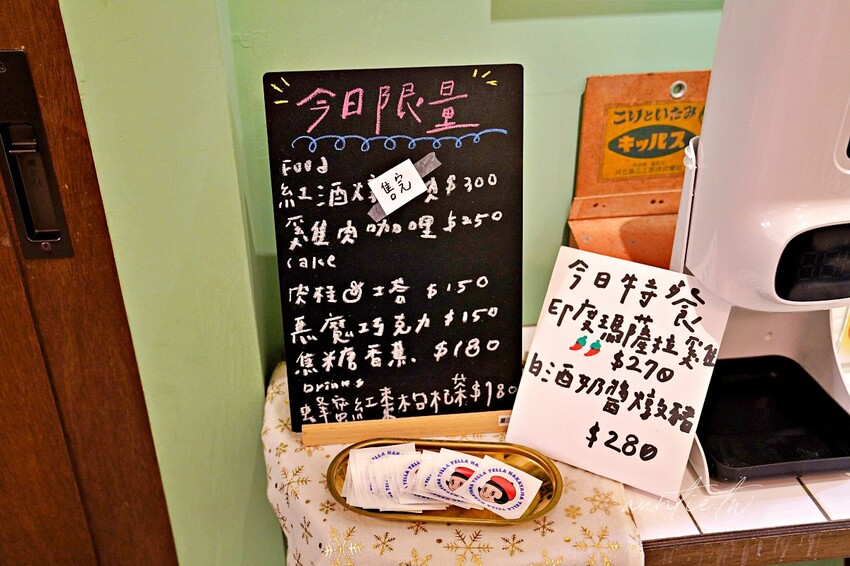 今日限量
Food
紅酒燉 $300
售完
雞肉咖哩 $250
Cake
肉桂 塔 $150
惡魔巧克力 $150
焦糖香蕉 $180
Drinks
蜂蜜紅棗枸杞茶 $180
今日特餐
印度瑪薩拉雞
$270
白酒奶醬燉豬
$280
こりといたみ
キッパス
YELLA YELLA
auntie.tw